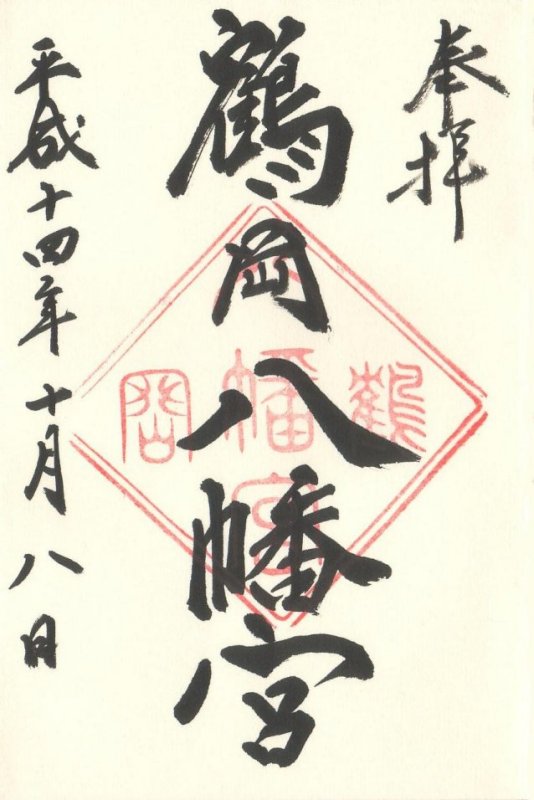 奉拝
鶴岡八幡宮
平成十四年十月八日
鶴
岡
八幡宮